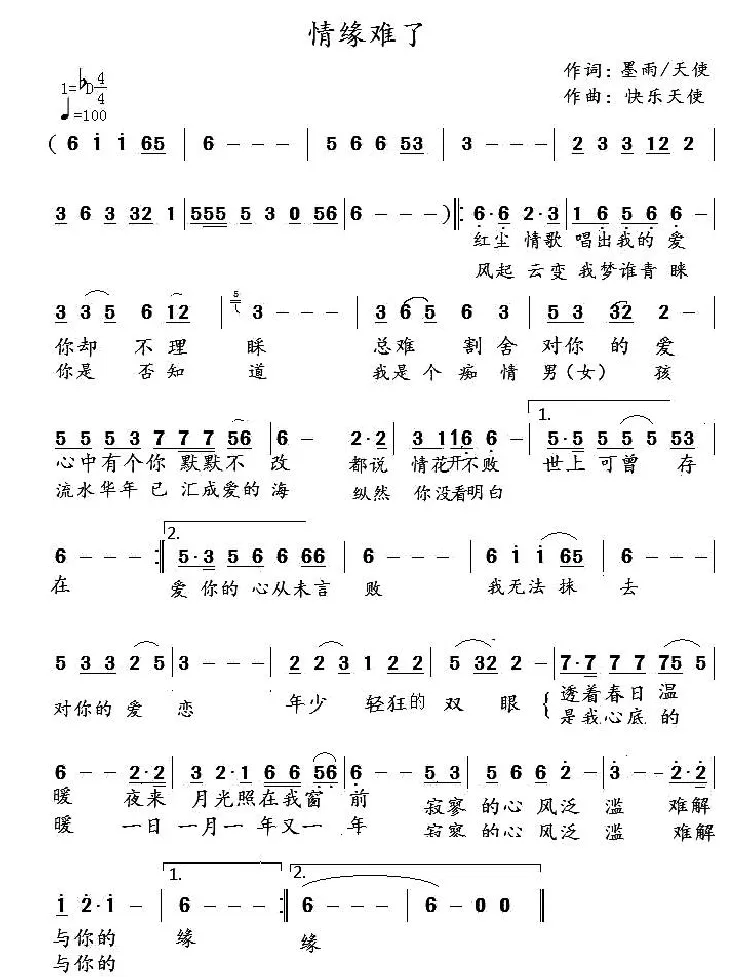 情缘难了
作词：墨雨/天使
1=♭D 4/4
作曲：快乐天使
♩=100
( 6 i i 65 | 6 - - - | 5 6 6 53 | 3 - - - | 2 3 3 12 2 |
3 6 3 32 1 | 555 5 3 0 56 | 6 - - ) ‖: 6·6 2·3 | 1 6 5 6 6 - |
红尘 情歌 唱出我的 爱
风起 云变 我梦谁青 睐
3 3 5 6 12 | 5 3 - - - | 3 6 5 6 3 | 5 3 32 2 - |
你却 不 理 睬 总难 割 舍 对你 的 爱
你是 否 知 道 我是 个 痴 情 男（女） 孩
5 5 5 3 7 7 7 56 | 6 - 2·2 | 3 1 16 6 - | 1. 5·5 5 5 5 53 |
心中有个你 默默不 改 都说 情花开不败 世上 可曾 存
流水华年 已 汇成爱的 海 纵然 你没看明白
6 - - - :‖ 2. 5·3 5 6 6 66 | 6 - - - | 6 i i 65 | 6 - - - |
在 爱 你的 心从未言 败 我无法 抹 去
5 3 3 2 5 | 3 - - - | 2 2 3 1 2 2 | 5 32 2 - | 7·7 7 7 75 5 |
对你的 爱 恋 年少 轻狂的 双 眼 { 透着春日 温
是我心底 的
6 - - 2·2 | 3 2·1 6 6 56 | 6 - - 5 3 | 5 6 6 2 - | 3 - - 2·2 |
暖 夜来 月光照在我窗 前 寂寥 的心 风泛 滥 难解
暖 一日 一月一 年又一 年 寂寥 的心 风泛 滥 难解
i 2·i | 1. 6 - - - :‖ 2. 6 - - - | 6 - 0 0 ‖
与你的 缘 缘
与你的